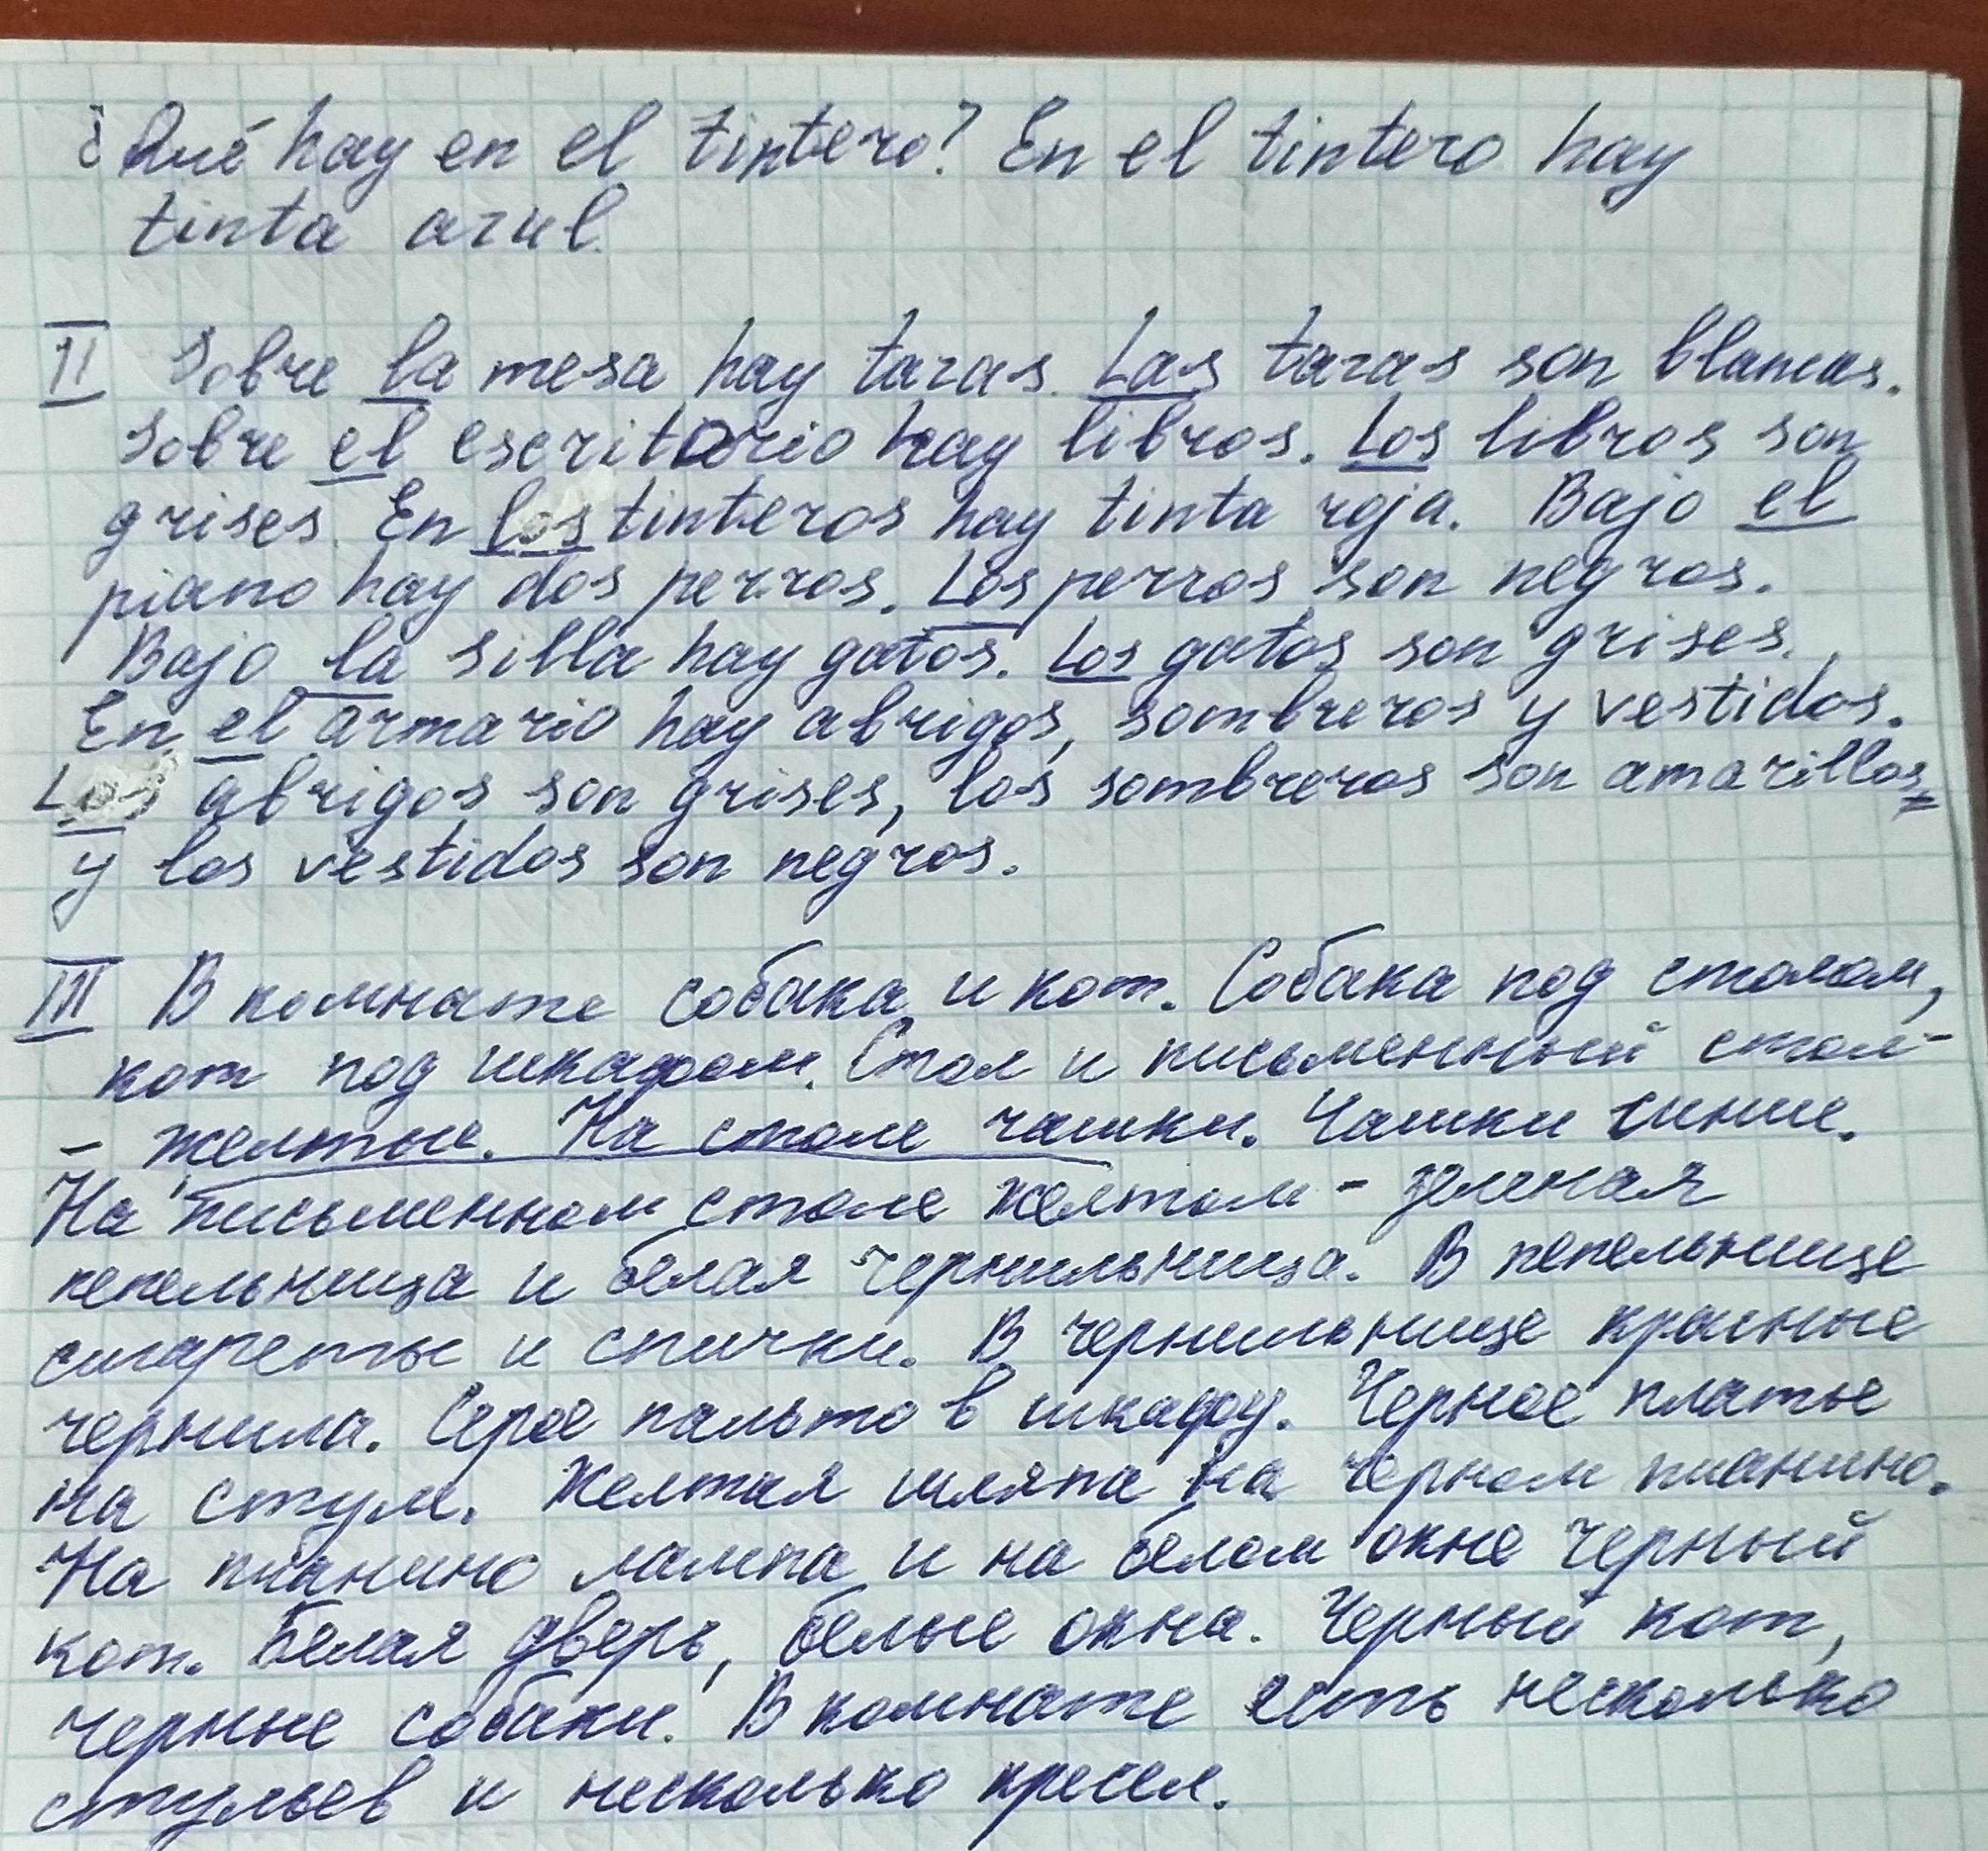 ¿Qué hay en el tintero? En el tintero hay
tinta azul.
II Sobre la mesa hay tazas. Las tazas son blancas.
Sobre el escritorio hay libros. Los libros son
grises. En los tinteros hay tinta roja. Bajo el
piano hay dos perros. Los perros son negros.
Bajo la silla hay gatos. Los gatos son grises.
En el armario hay abrigos, sombreros y vestidos.
Los abrigos son grises, los sombreros son amarillos,
y los vestidos son negros.
III В комнате собака и кот. Собака под столом,
кот под шкафом. Стол и письменный стол -
- желтые. На столе чашки. Чашки синие.
На письменном столе желтом - зеленая
пепельница и белая чернильница. В пепельнице
сигареты и спички. В чернильнице красные
чернила. Серое пальто в шкафу. Черное платье
на стул. Желтая шляпа на черном пианино.
На пианино лампа и на белом окне черный
кот. Белая дверь, белые окна. Черный кот,
черные собаки. В комнате есть несколько
стульев и несколько кресел.